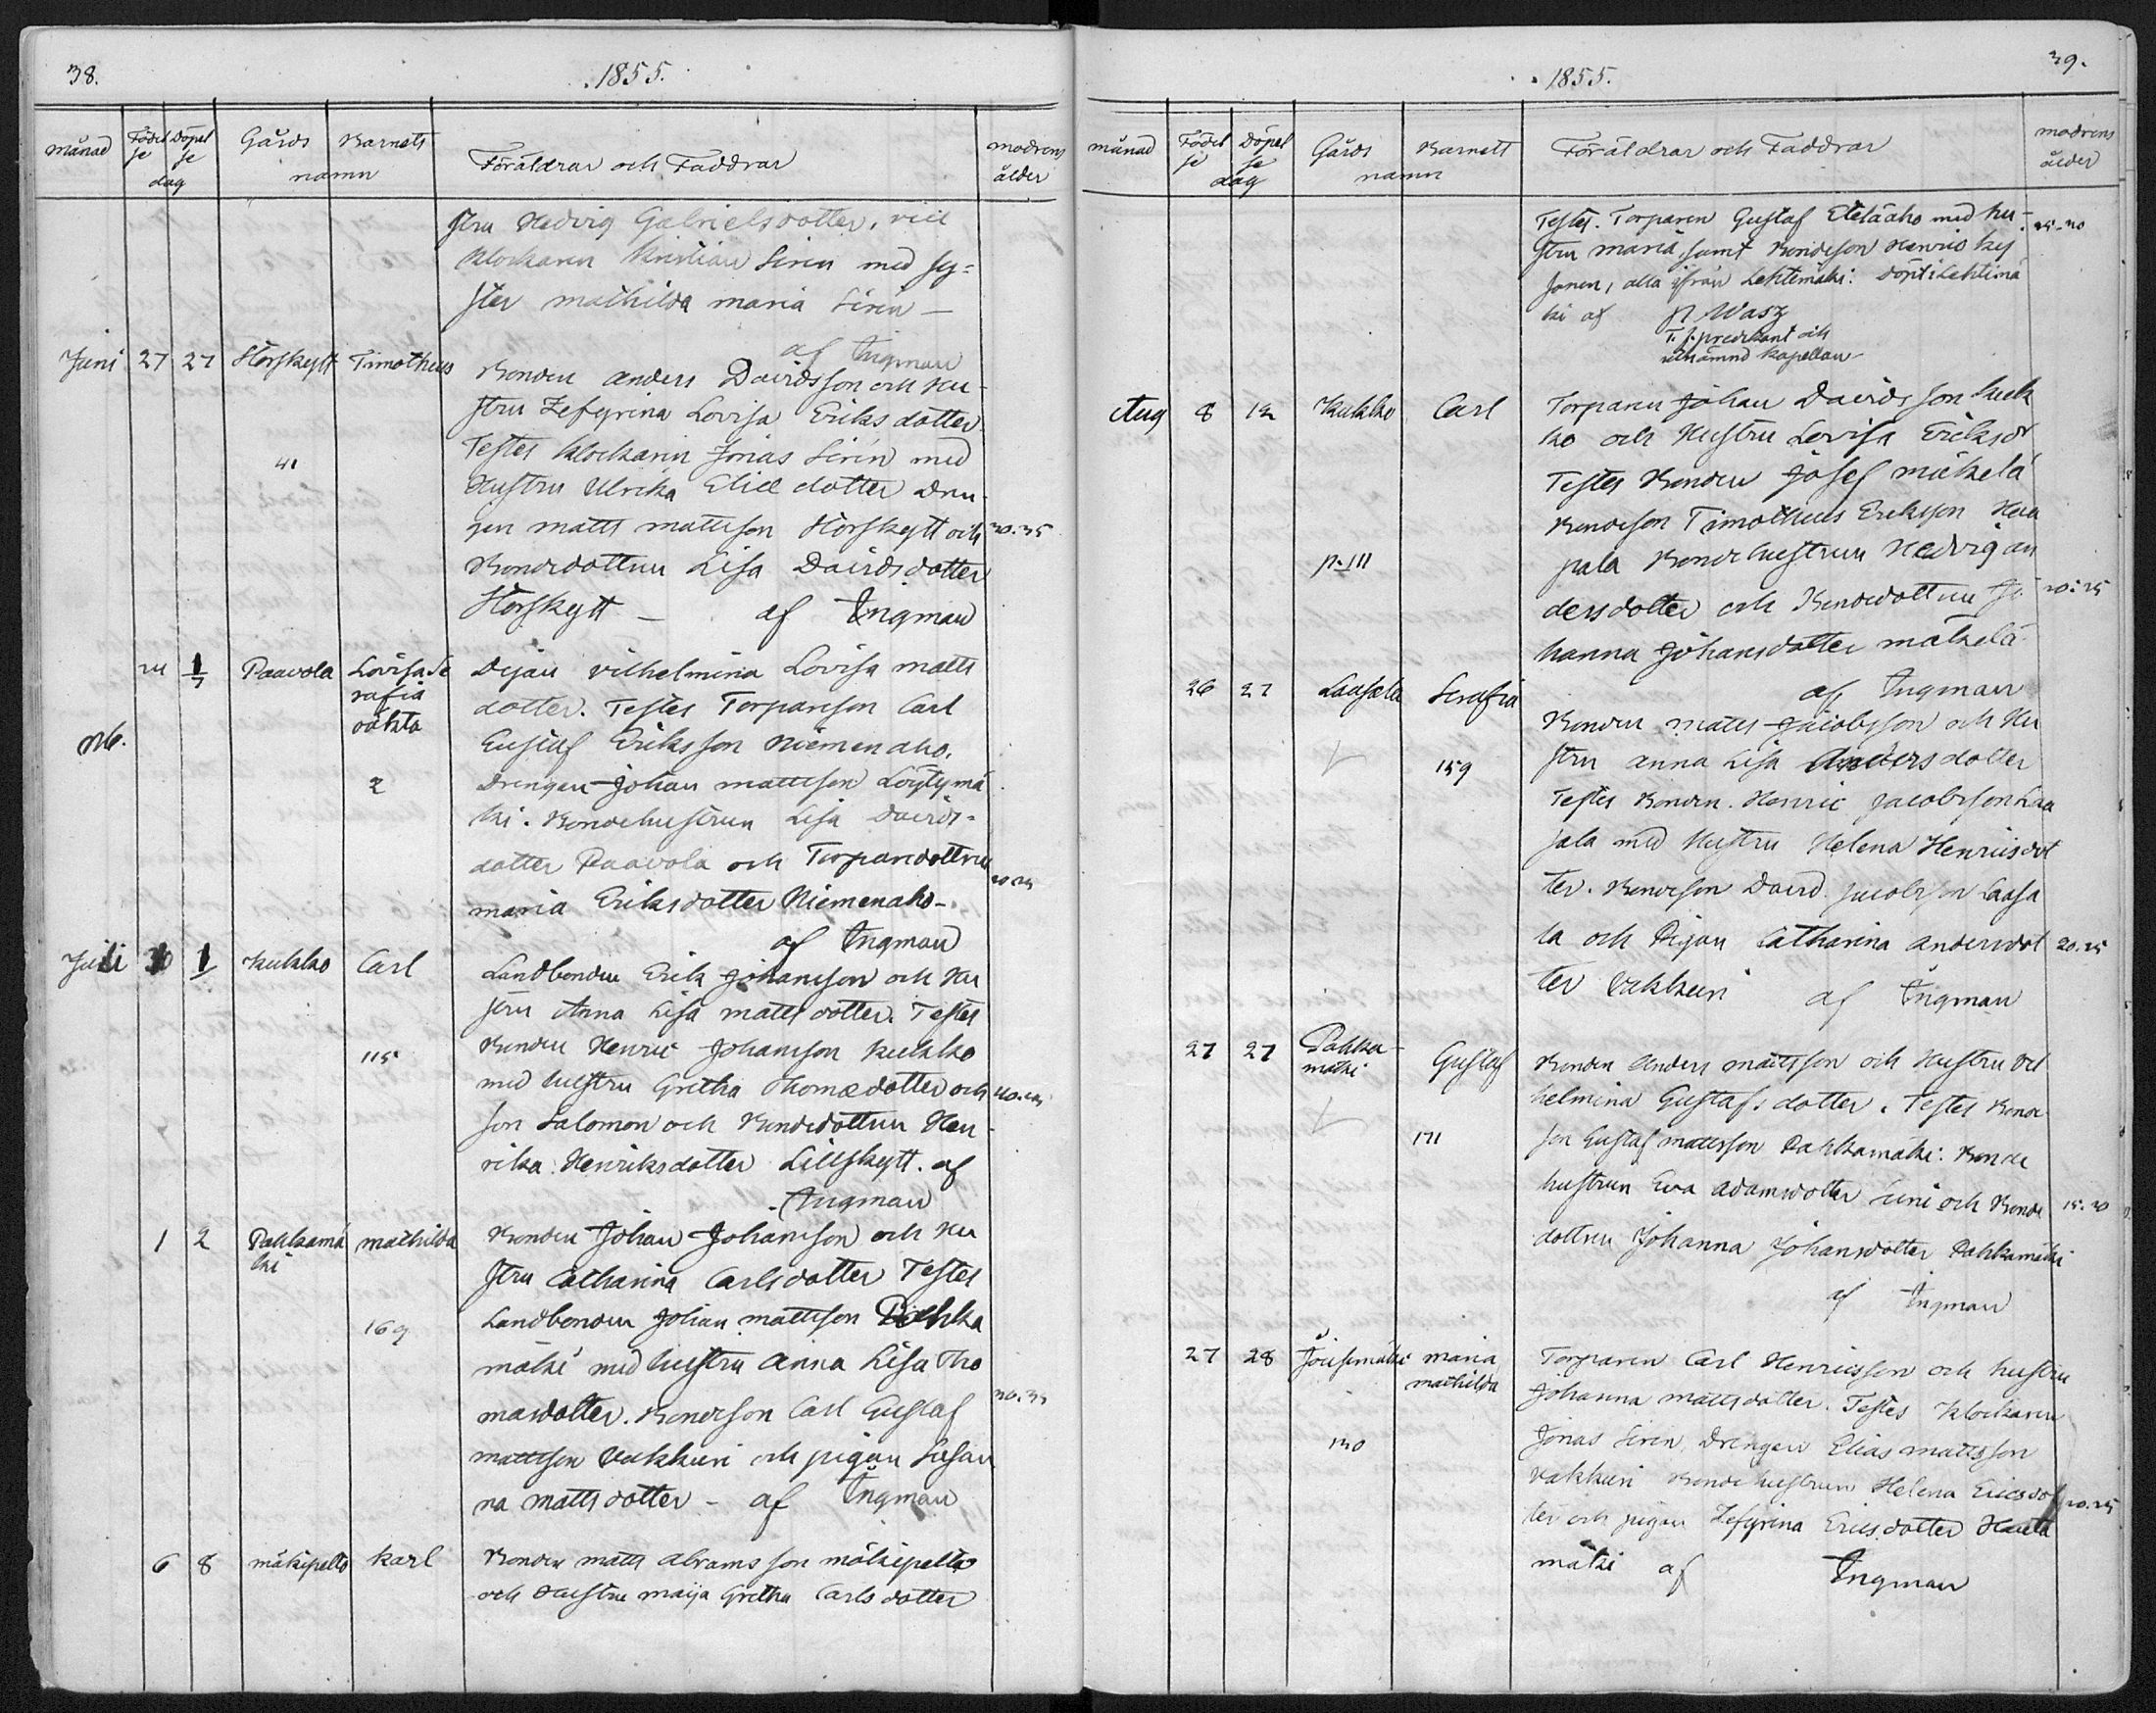 38.
1855.
månad Födel se Döpel se dag Gårds Barnets namn Föräldrar och Faddrar modrens ålder
stru Hedvig Gabrielsdotter,
klockaren Kristian Siren med sy=
ster mathilda maria Siren —
af Ingman
Juni 27 27 Storskytt Timotheus Bonden anders Davidsson och hu-
stru Zefyrina Lovisa Eriksdotter.
Testes klockarin Jonas Sirén med
41 Hustru Ulrika Eliæ dotter dren-
gen matts mattsson Storskytt och 30.35
Bondedottren Lisa Davidsdotter
Storskytt — af Ingman
24 1/7 Paavola Lovisa Se Pigan vilhelmina Lovisa matts
rafia dotter. Testes Torparson Carl
oäkta Gustaf Eriksson Niemenaho,
Nb.
2 Drengen Johan mattsson Löytymä
ki. Bondehustrun Lisa Davids-
dotter Paavola och Torparedottren 20.25
maria Eriksdotter Niemenaho-
af Ingman
Juli 30 1 Kukko Carl Landbonden Erik Johansson och Hu
stru Anna Lisa matts dotter. Testes
115 Bonden Henric Johansson Kukko
med hustru Gretha Thomædotter och 40.45
son Salomon och Bondedottren Hen-
rika Henriksdotter Lillskytt. af
Ingman
1 2 Pahkamä mathilda Bonden Johan Johansson och Hu
ki stru Catharina Carlsdotter Testes
169 Landbonden Johan mattsson Pahka
mäki med hustru Anna Lisa Tho
masdotter. Bondeson Carl Gustaf 30.35
mattsson Vakkuri och pigan Susan
na mattsdotter - af Ingman
6 8 mäkipelto Karl Bonden matts abramsson mäkipelto
och Hustru maija Gretha Carlsdotter
39.
1855.
månad Födel se Döpel se dag Gårds Barnets namn Föräldrar och Faddrar modrens ålder
Testes. Torparen Gustaf Eteläaho med hu- 25.30
stru maria, samt Bondeson Henric
alla ifrån Lehtimäki. Döpt i Lehtimä
ki af N Wasz
T. f. predikant och
utnämnd kapellan-
Aug 8 12 Kukko Carl Torparen Johan Davidsson Kuk
ko och Hustru Lovisa Eriksdr
Testes Bonden Josef mäkelä
Bondeson Timotheus Eriksson Haa
p. 111 pala Bondehustrun Hedvig an
dersdotter och Bondedottren Jo 20.25
hanna Johansdotter mäkelä
af Ingman
26 27 Laasala Serafia Bonden matts Jacobsson och Hu
159 stru anna Lisa Andersdotter
Testes Bonden. Henric Jacobsson Laa
sala med Hustru Helena Henricsdot
ter. Bondeson David Jacobsson Laasa
la och Pigan Catharina andersdot 20.25
ter Vakkuri af Ingman
27 27 Pahka- Gustaf Bonden Anders mattsson och Hustru Vil
mäki helmina Gustafsdotter. Testes Bonde
171 son Gustaf mattsson Pahkamäki. Bonde
hustrun Eva adamsdotter och Bonde 15.20
dottren Johanna Johansdotter Pahkamäki
af Ingman
27 28 Jousimäki maria Torparen Carl Henricsson och hustru
mathilda Johanna mattsdotter. Testes klockaren
130 Jonas Siren, Drengen Elias mattsson
Vakkuri Bondehustrun Helena Ericsdot 20.25
ter och pigan Zefyrina Ericsdotter Hauta
mäki af Ingman